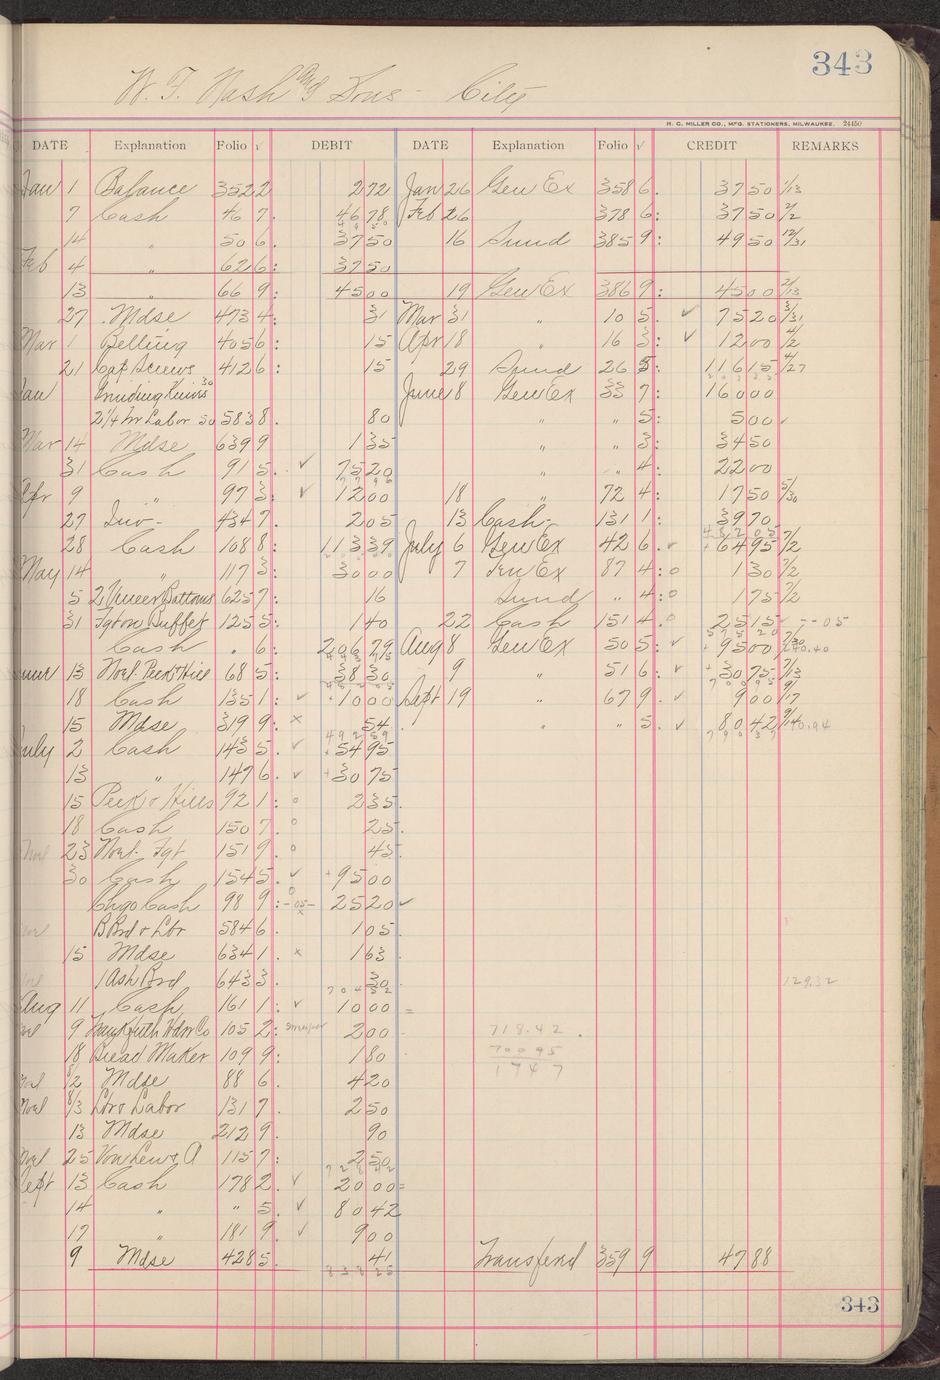 343
W. F. Nash and Sons - City
H. C. MILLER CO., MFG. STATIONERS, MILWAUKEE. 24450
DATE Explanation Folio √ DEBIT DATE Explanation Folio √ CREDIT REMARKS
Jan 1 Balance 352 2 2 72 Jan 26 Gen Ex 358 6. 37 50 1/13
7 Cash 46 7. 46 78 Feb 26 378 6: 37 50 2/2
14 " 50 6. 37 50 16 Sund 385 9: 49 50 12/31
Feb 4 " 62 6: 37 50
13 " 66 9: 45 00 19 Gen Ex 386 9: 45 00 2/13
27 Mdse 473 4: 31 Mar 31 " 10 5. ✓ 75 20 3/31
Mar 1 Belting 405 6: 15 Apr 18 " 16 3: ✓ 12 00 4/2
21 Cap Screws 412 6: 15 29 Sund 26 5: 116 15 4/27
Jan Grinding Knives 30 June 8 Gen Ex 33 7: 160 00
2 1/4 hr Labor 50 583 8. 80 " " 5: 5 00 ✓
Mar 14 Mdse 639 9 1 35 " " 3: 34 50
31 Cash 91 5. ✓ 75 20 " " 4: 22 00
Apr 9 " 97 3: ✓ 12 00 18 " 72 4: 17 50 5/30
27 Inv - 434 7. 2 05 13 Cash - 131 1: 39 70
28 Cash 108 8: 113 39 July 6 Gen Ex 42 6. ✓ 64 95 7/2
May 14 " 117 3: 30 00 7 Gen Ex 87 4: o 1 30 7/2
5 2 Veneer Bottoms 625 7: 16 Sund " 4: o 1 75 7/2
31 Fgt on Buffet 125 5: 1 40 22 Cash 151 4: o 25 15 - - 05
Cash . 6: 206 79 Aug 8 Gen Ex 50 5: ✓ 95 00 7/30
June 13 Noal. Peck & Hill 68 5: 38 30 9 " 51 6. ✓ 30 75 7/13
18 Cash 135 1: ✓ 10 00 Sept 19 " 67 9. ✓ 9 00 9/17
15 Mdse 319 9: x 54 " " 5. ✓ 80 42 9/14
July 2 Cash 143 5. ✓ 54 95
13 " 147 6. ✓ 30 75
15 Peck & Hills 92 1: o 2 35
18 Cash 150 7. o 25
Noal 23 Noal. Fgt 151 9. o 45
30 Cash 154 5. ✓ 95 00
Chgo Cash 98 9: - 05 - 25 20 ✓
B Brd & Lbr 584 6. 1 05
15 Mdse 634 1. x 1 63
1 Ash Brd 643 3 30
129.32
Aug 11 Cash 161 1: ✓ 10 00 =
9 105 2: 2 00 718.42
18 Bread Maker 109 9: 1 80 700 95
Noal 8/2 Mdse 88 6. 4 20 17 47
Noal 8/3 Lbr & Labor 131 7. 2 50
13 Mdse 212 9. 90
Noal 25 115 7: 2 50
Sept 13 Cash 178 2. ✓ 20 00 =
14 " " 5. ✓ 80 42
17 " 181 9. ✓ 9 00
9 Mdse 428 5. 41 Transferd 359 9 47 88
838 25
343